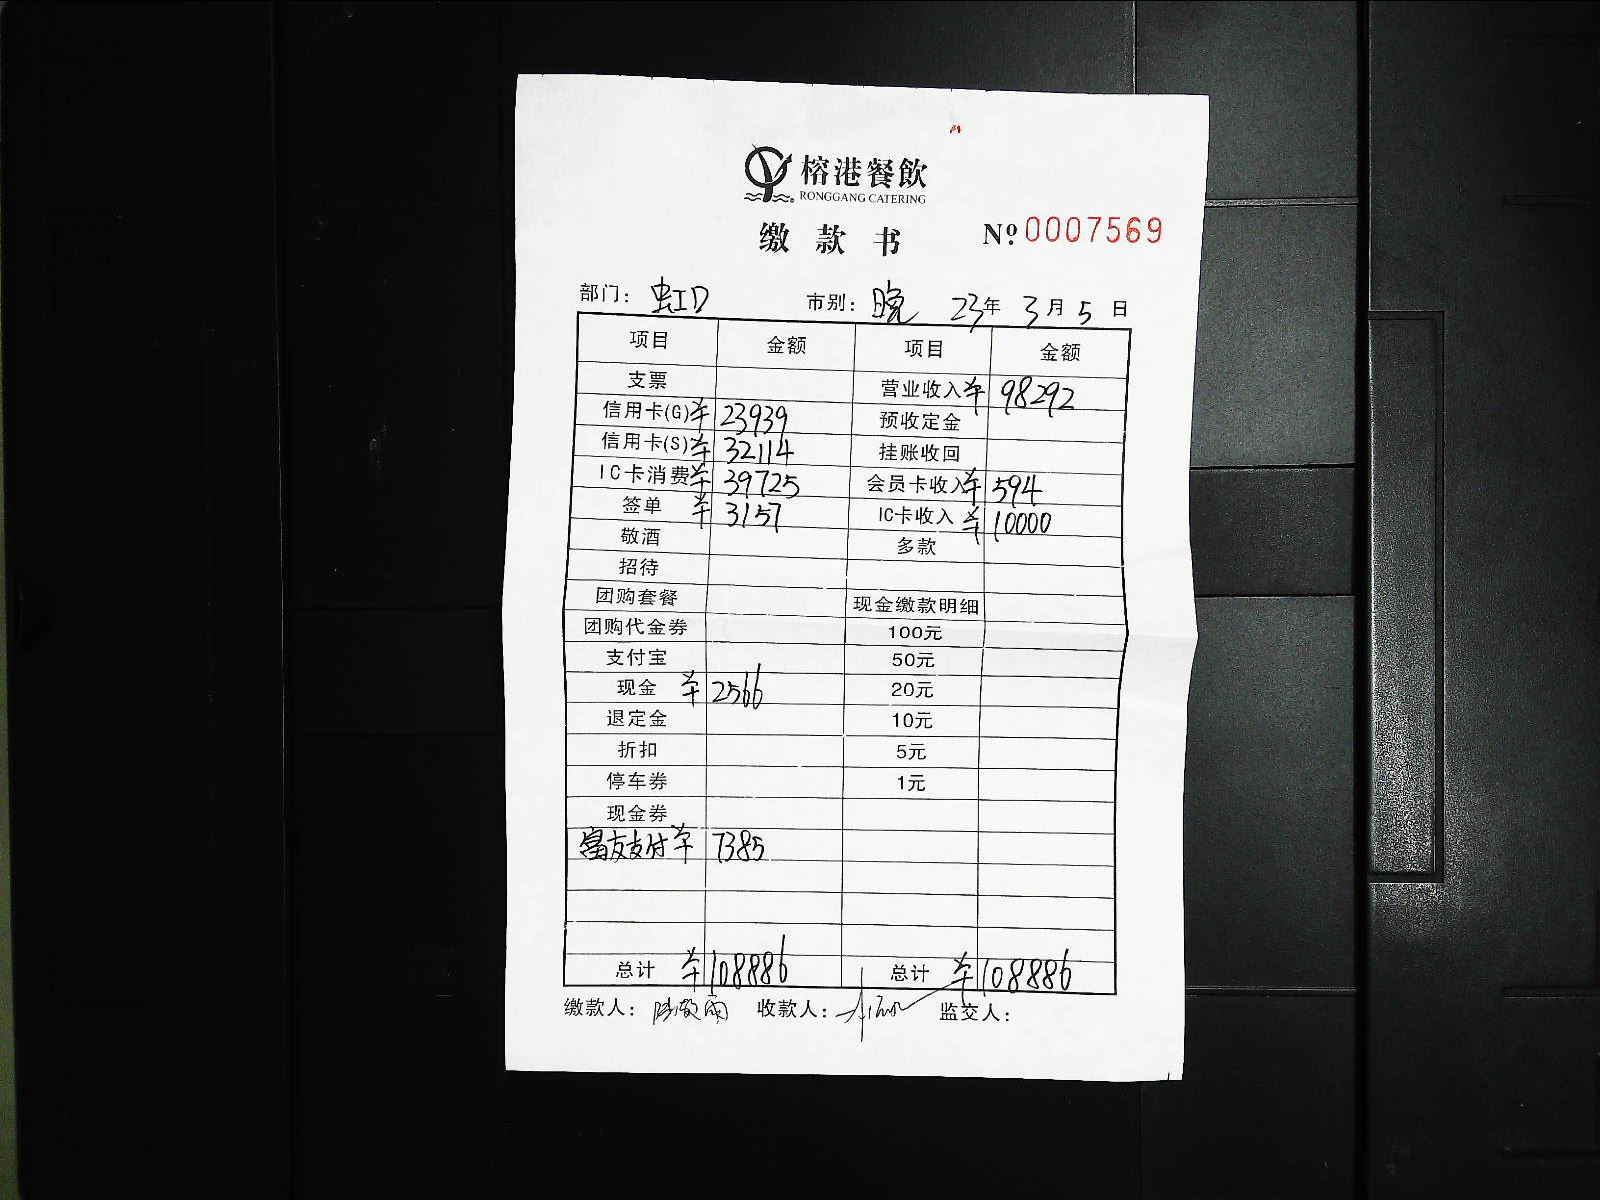 榕港餐飲
RONGGANG CATERING
缴款书 Nº 0007569
部门: 虹口 市别: 晚 23年 3月 5日
项目 金额 项目 金额
支票 营业收入 ¥ 98292
信用卡(G) ¥ 23939 预收定金
信用卡(S) ¥ 32114 挂账收回
IC卡消费 ¥ 39725 会员卡收入 ¥ 594
签单 ¥ 3157 IC卡收入 ¥ 10000
敬酒 多款
招待
团购套餐 现金缴款明细
团购代金券 100元
支付宝 50元
现金 ¥ 2566 20元
退定金 10元
折扣 5元
停车券 1元
现金券
富友支付 ¥ 7385
总计 ¥ 108886 总计 ¥ 108886
缴款人: 收款人: 监交人: